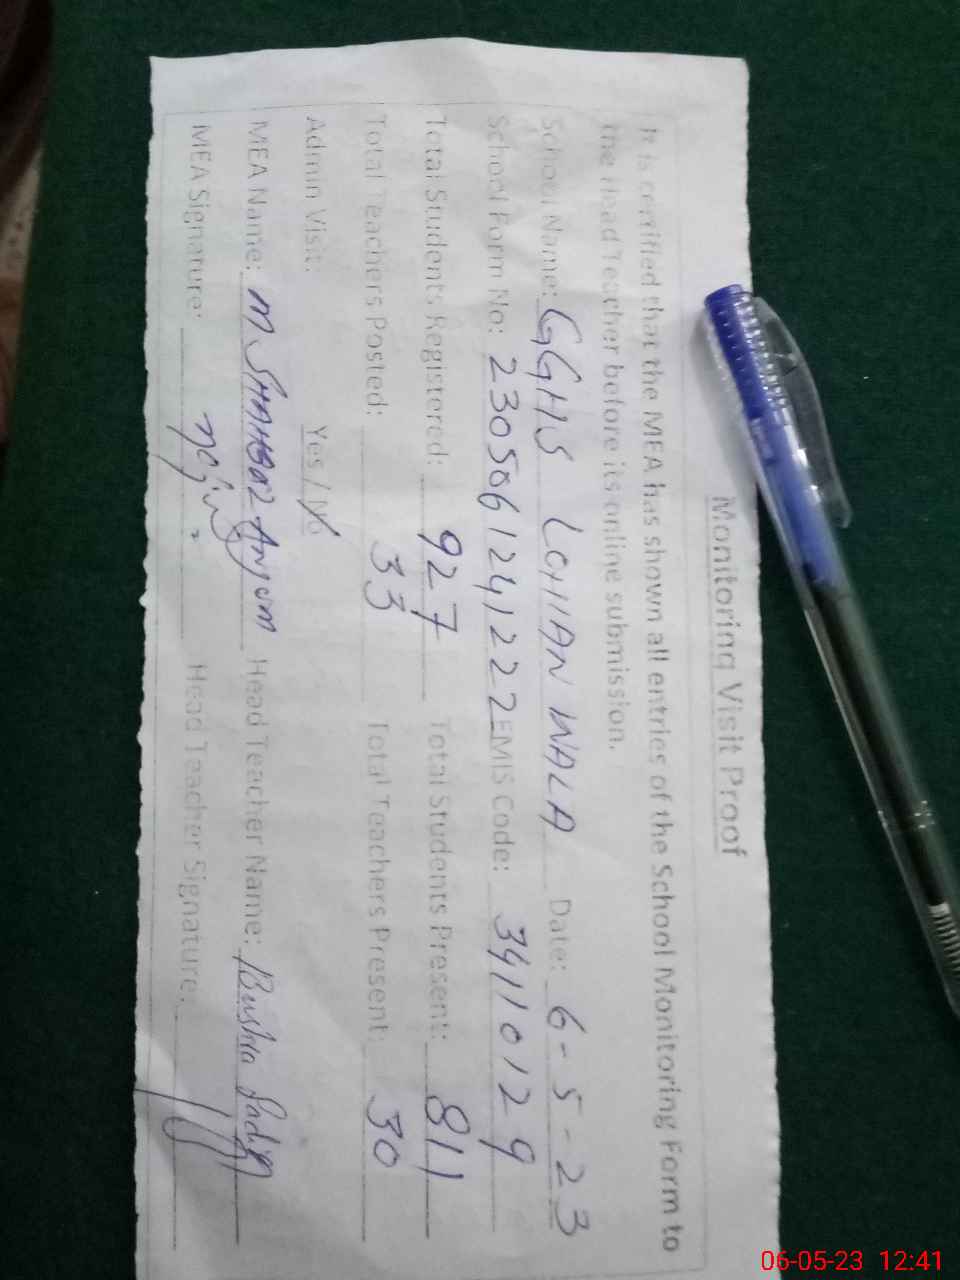 Monitoring Visit Proof
It is certified that the MEA has shown all entries of the School Monitoring Form to
the Head Teacher before its online submission.
School Name: GGHS LOHIAN WALA Date: 6-5-23
School Form No: 2305061241222 EMIS Code: 34110129
Total Students Registered: 927 Total Students Present: 811
Total Teachers Posted: 33 Total Teachers Present: 30
Admin Visit: Yes / No
MEA Name: M SHAHBAZ Anjum Head Teacher Name: Bushra Sadiq
MEA Signature: Head Teacher Signature:
06-05-23 12:41